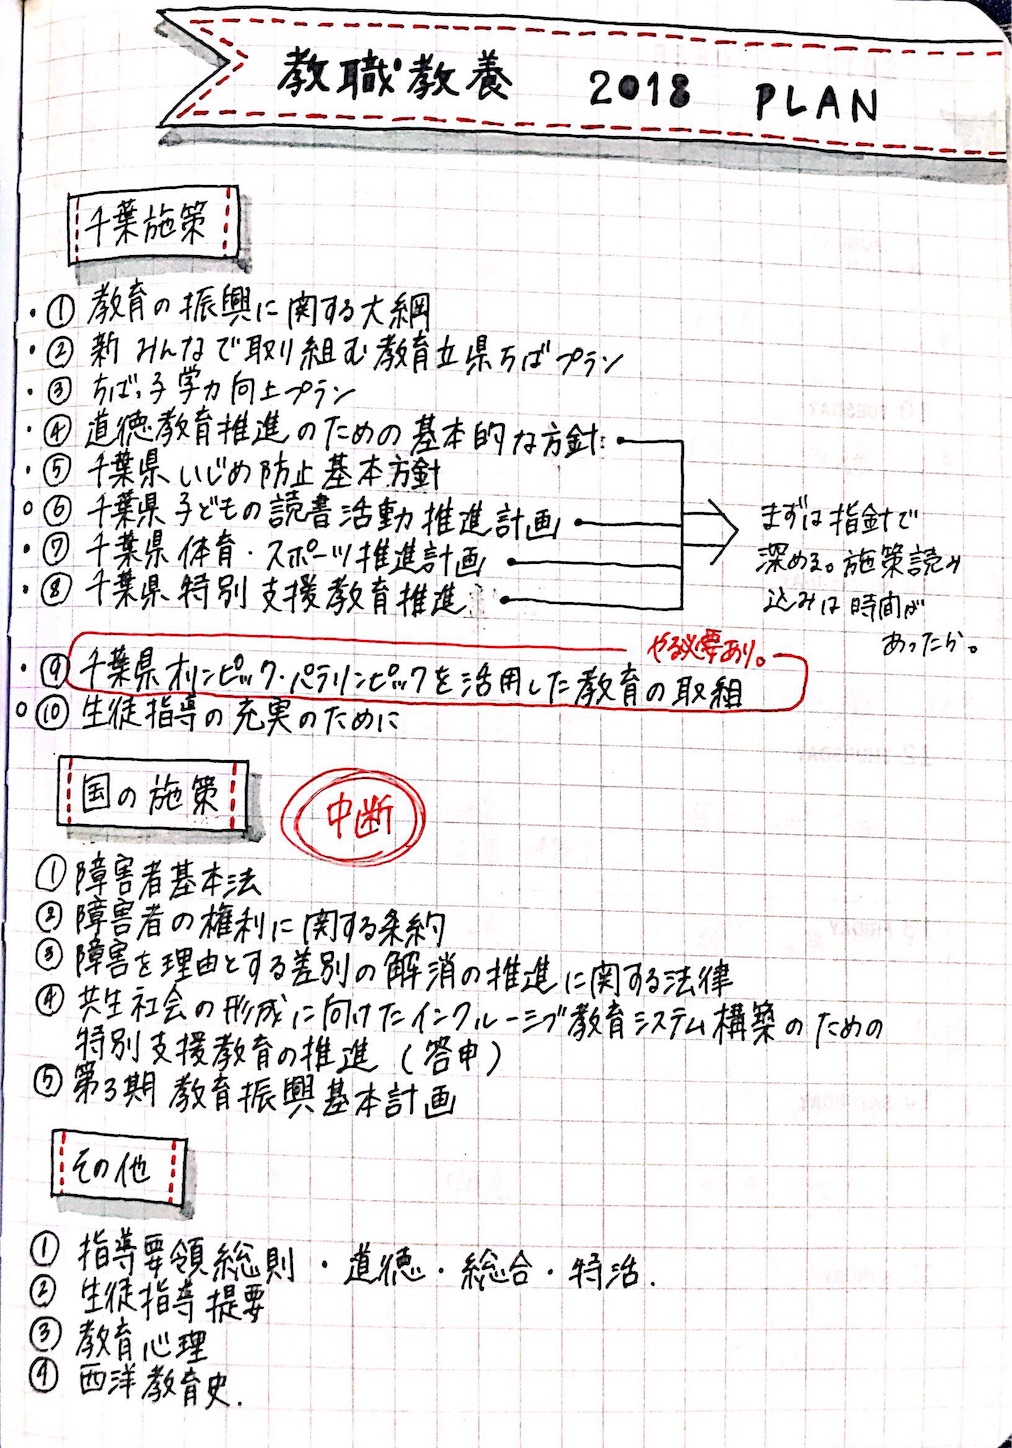 教職教養 2018 PLAN
千葉施策
・① 教育の振興に関する大綱
・② 新 みんなで取り組む教育立県ちばプラン
・③ ちばっ子学力向上プラン
・④ 道徳教育推進のための基本的な方針
・⑤ 千葉県いじめ防止基本方針
○⑥ 千葉県子どもの読書活動推進計画
・⑦ 千葉県体育・スポーツ推進計画
・⑧ 千葉県特別支援教育推進
まずは指針で
深める。施策読み
込みは時間が
あったら。
やる必要あり。
・⑨ 千葉県オリンピック・パラリンピックを活用した教育の取組
○⑩ 生徒指導の充実のために
国の施策
中断
① 障害者基本法
② 障害者の権利に関する条約
③ 障害を理由とする差別の解消の推進に関する法律
④ 共生社会の形成に向けたインクルーシブ教育システム構築のための
特別支援教育の推進(答申)
⑤ 第3期教育振興基本計画
その他
① 指導要領総則・道徳・総合・特活.
② 生徒指導提要
③ 教育心理
④ 西洋教育史.